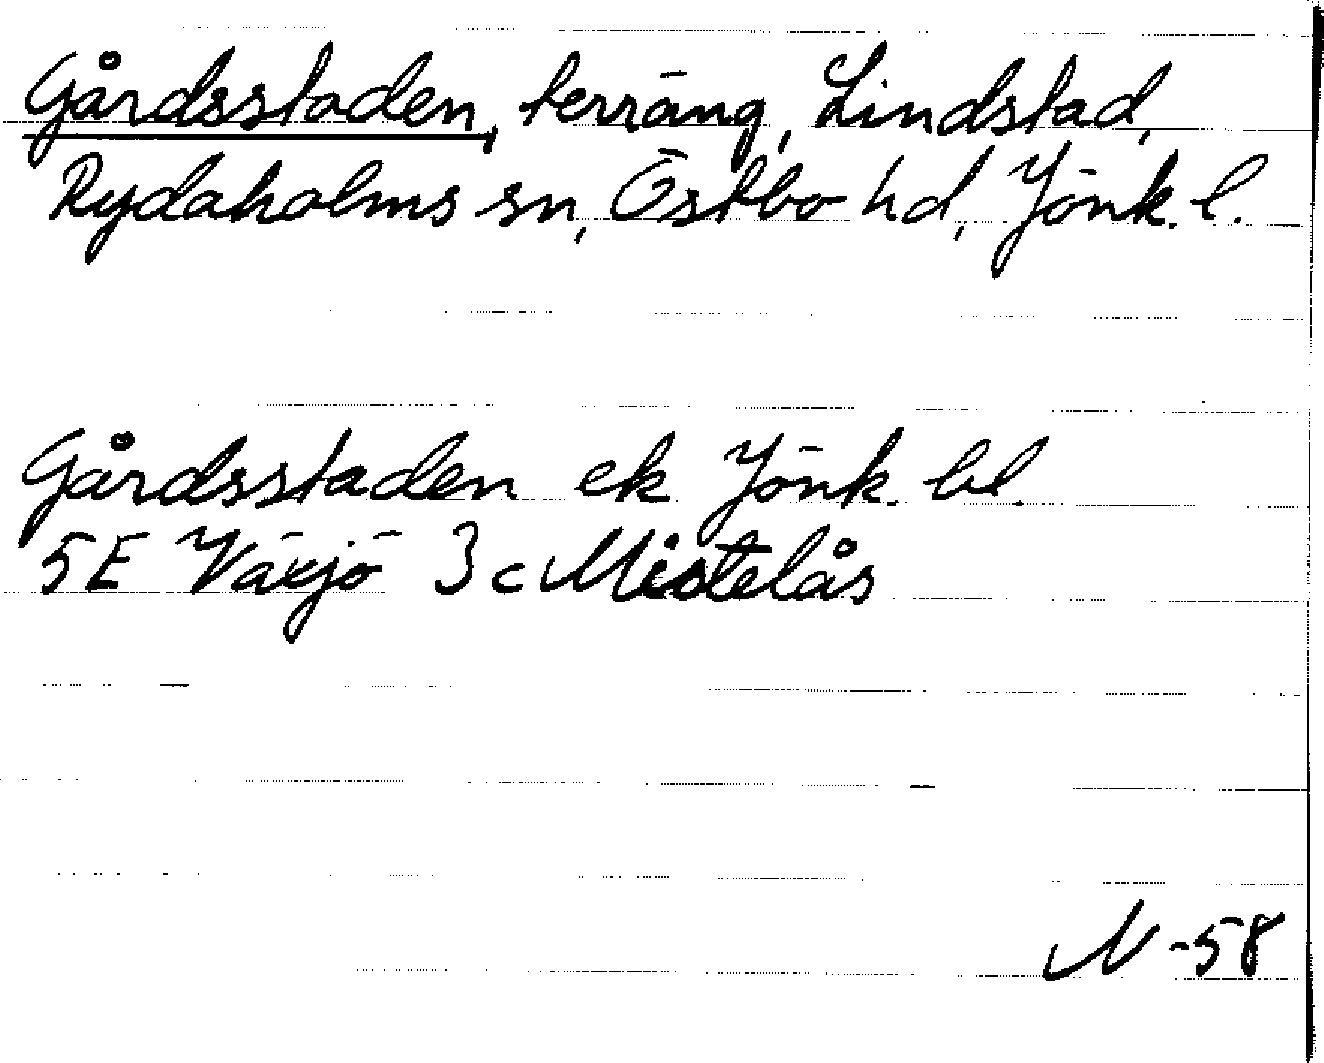 Gårdsstaden, terräng, Lindstad,
Rydaholms sn, Östbo hd, Jönk. l.
Gårdsstaden ek Jönk. bl.
5E Växjö 3c Mistelås
N -58